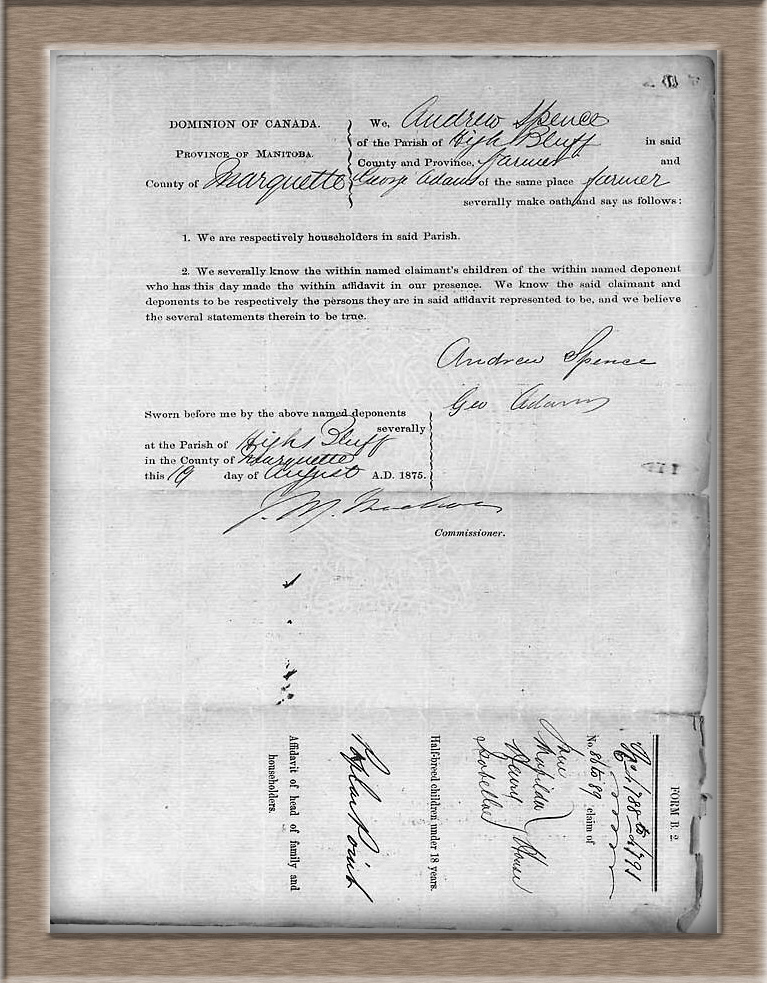 DOMINION OF CANADA.
PROVINCE OF MANITOBA.
County of Marquette
We, Andrew Spence
of the Parish of High Bluff in said
County and Province, farmer and
George Adams of the same place farmer
severally make oath and say as follows:
1. We are respectively householders in said Parish.
2. We severally know the within named claimant's children of the within named deponent
who has this day made the within affidavit in our presence. We know the said claimant and
deponents to be respectively the persons they are in said affidavit represented to be, and we believe
the several statements therein to be true.
Andrew Spence
Geo Adams
Sworn before me by the above named deponents
severally
at the Parish of High Bluff
in the County of Marquette
this 19 day of August A.D. 1875.
J. M.
Commissioner.
FORM B. 2.
4788 to 4791
No. 86 to 89 claim of
Matilda
House
Isabella
Half-breed children under 18 years.
Poplar Point
Affidavit of head of family and
householders.